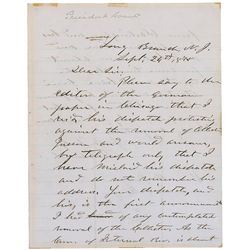 Long Branch N.J.
Sept. 28th
Dear Sir:
Please say to the
editor of the German
paper in Chicago that I
his dispatch protesting
against the removal of
and would answer,
by telegraph only that I
have mislaid his dispatch
and do not remember
his address. Your dispatch, and
his, is the first announcement
I had of any contemplated
removal of the Collector. As the
term of Internal Rev. is about